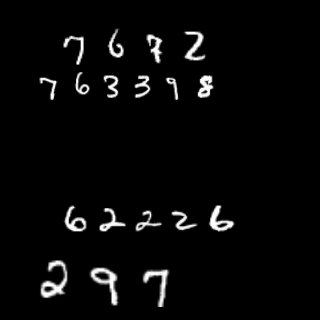 7672
763398
62226
297